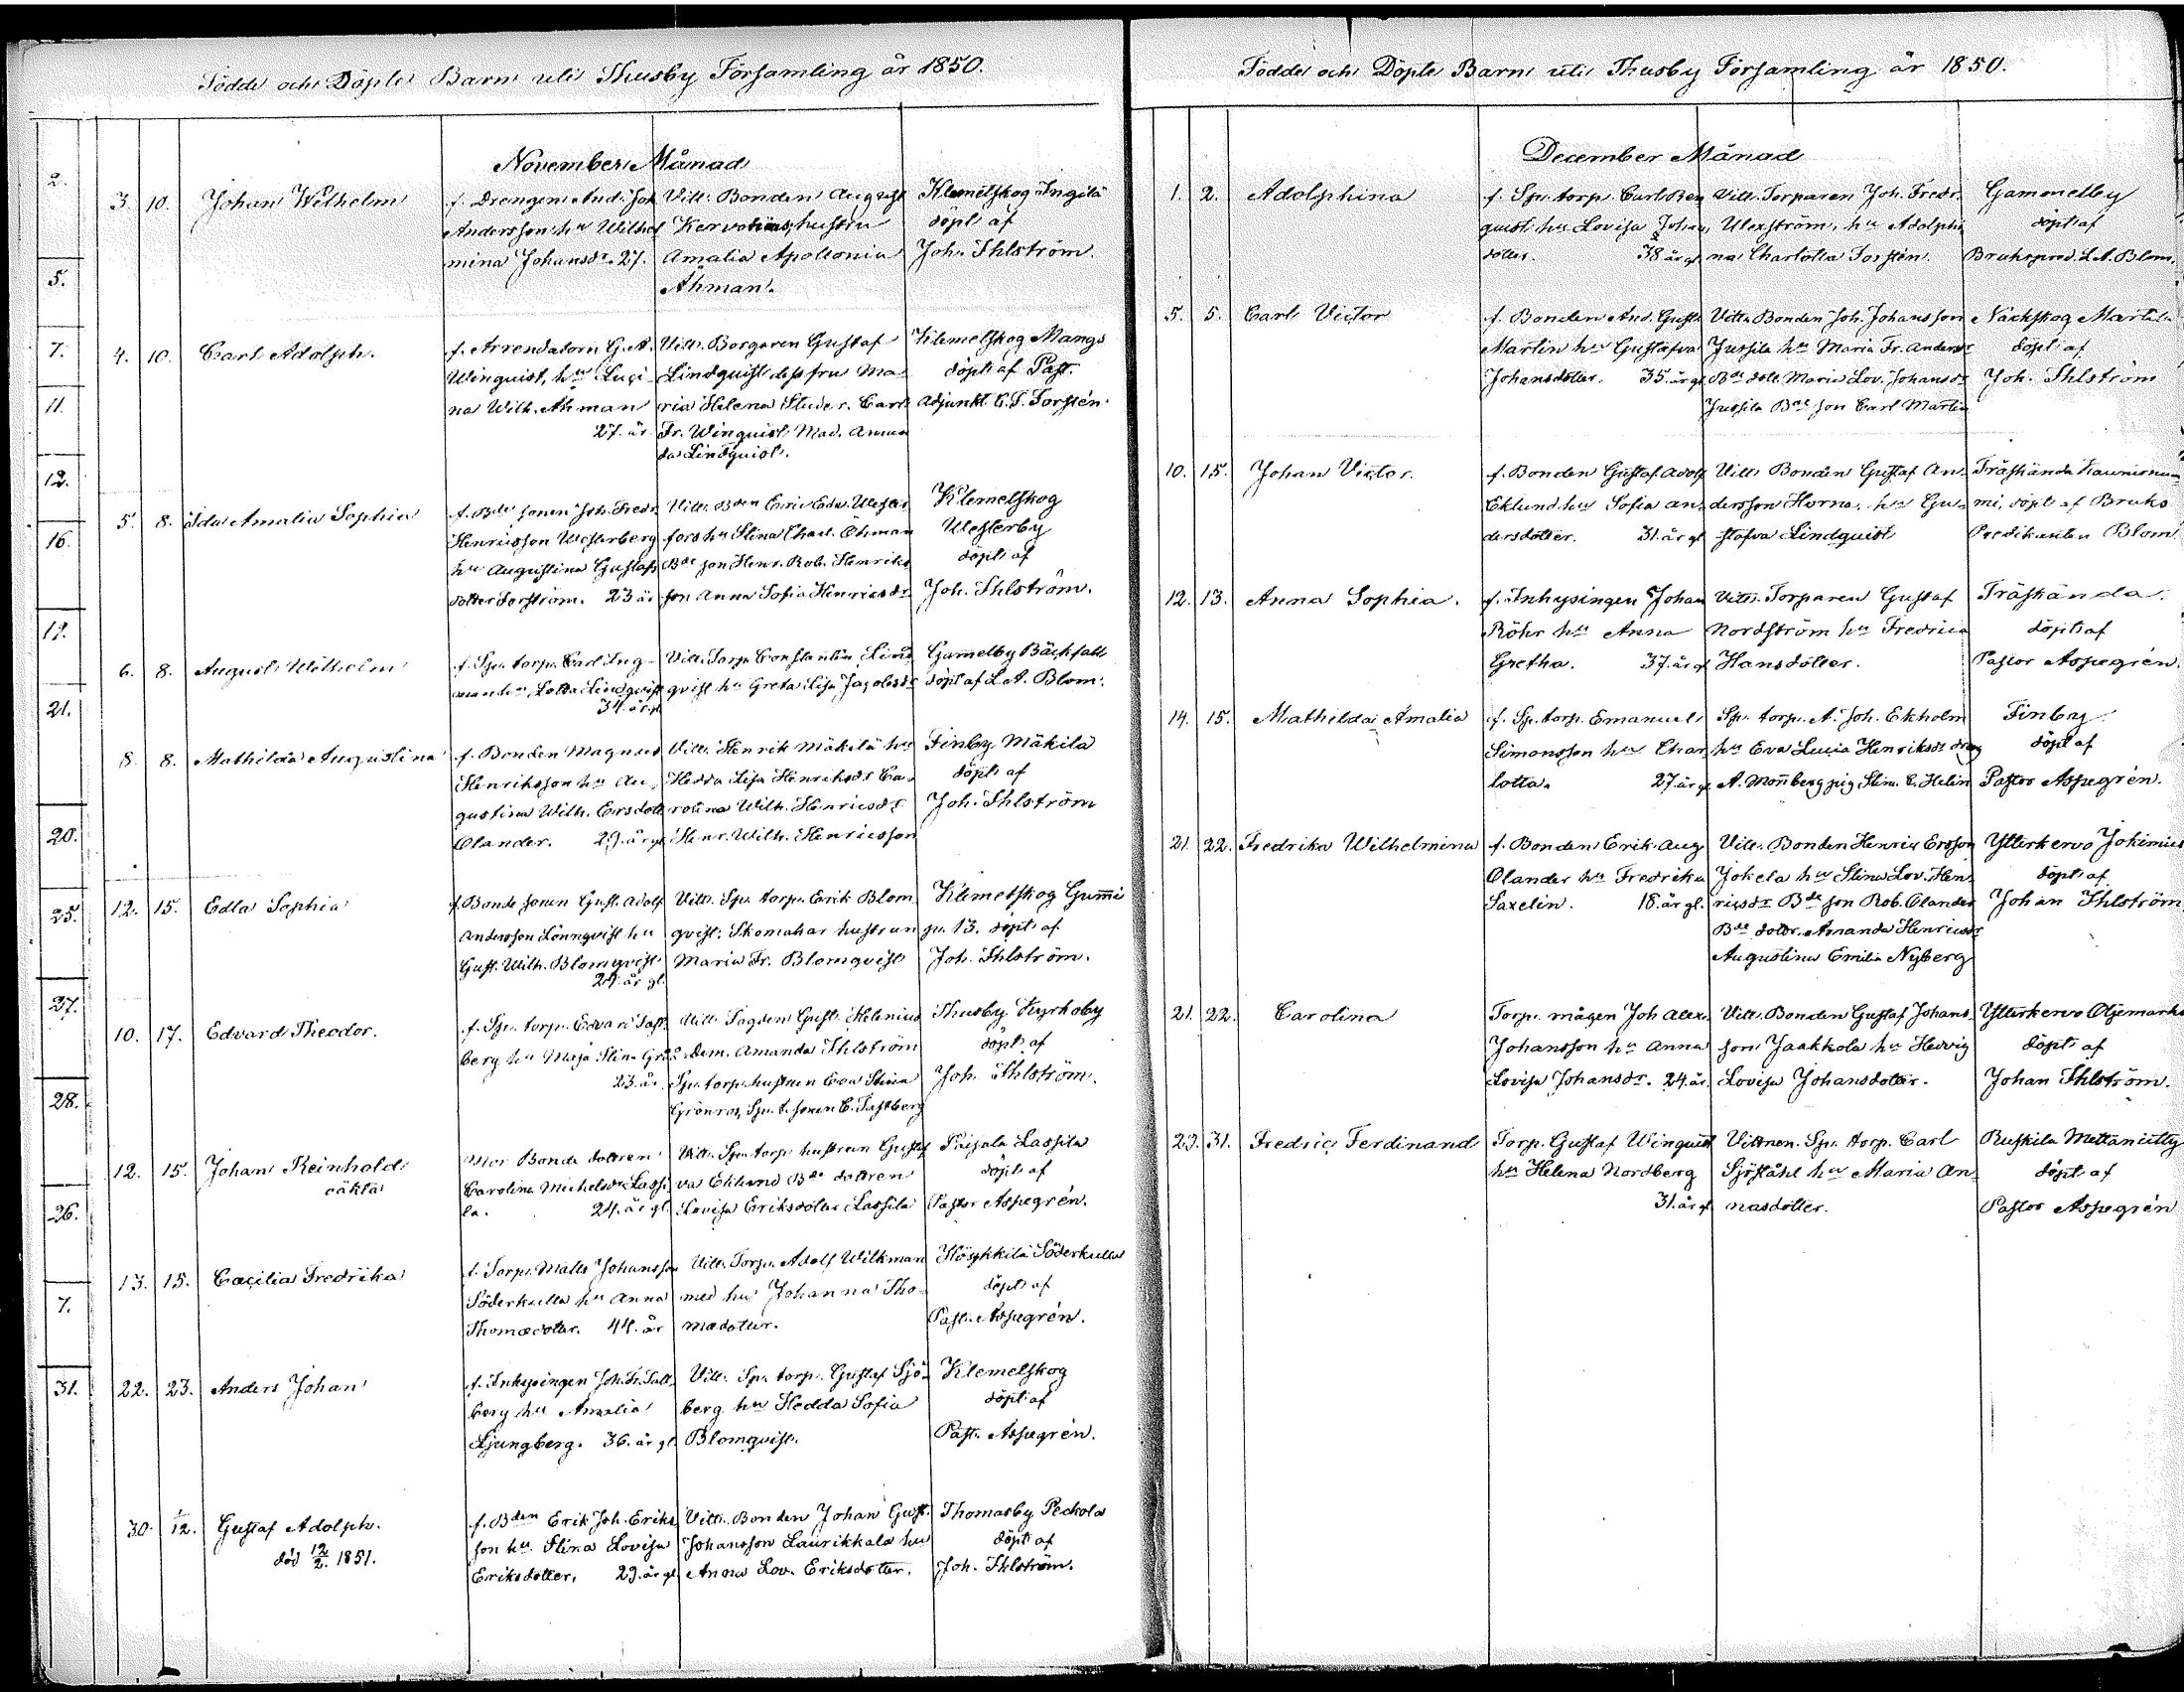 Födde och Döpte Barn uti Thusby Församling år 1850.
November Månad
2.
5.
7.
11.
12.
16.
19.
21.
20.
25.
27.
28.
26.
7.
31.
3. 10. Johan Wilhelm
f. Drengen And. Joh
Andersson hu Wilhel
mina Johansdr. 27.
Vittn. Bonden August
Kervohius, hustru
Amalia Apollonia
Åhman.
Klemetskog Ingilä
döpt af
Joh. Ihlström.
4. 10. Carl Adolph.
f. Arrendatorn G. A.
Winquist, hu Luci-
na Wilh. Åhman
27. år
Vittn. Borgaren Gustaf
Lindquist dess fru Ma-
ria Helena Studer. Carl
Fr. Winquist Mad. Aman
da Lindquist.
Klemetskog Mangs
döpt af Past.
Adjunkt. C. T. Forstén.
5. 8. Ida Amalia Sophia
f. Bde sonen Joh. Fredr.
Henricsson Westerberg
hu Augustina Gustafs
dotter Forström. 23 år
Vittn. Bden Eric Edv. Wester
fors hu Stina Charl. Öhman
Bde son Henr. Rob. Henriks
son Anna Sofia Henricsdr
Klemetskog
Westerby
döpt af
Joh. Ihlström.
6. 8. August Wilhelm
f. Spr. torp. Carl Ing-
man hu Lotta Lindqvist
34. år gl
Vittn. Torp. Constantin Lind
qvist hu Greta Lisa Jacobsdr
Gamelby Bäckfall
döpt af L. A. Blom.
8. 8. Mathilda Augustina
f. Bonden Magnus
Henriksson hu Au-
gustina Wilh. Ersdott
Olander. 29. år gl
Vittn. Henrik Mäkilä hu
Hedda Lisa Henriksdr Ca-
rolina Wilh. Henricsdr
Henr. Wilh. Henricsson
Finby Mäkilä
döpt af
Joh. Ihlström
12. 15. Edla Sophia
f. Bonde sonen Gust. Adolf
Andersson Lönnqvist hu
Gust. Wilh. Blomqvist
24. år gl.
Vittn. Spr. torp. Erik Blom
qvist. Skomakar hustrun
Maria Fr. Blomqvist
Klemetskog Gummi
gr. 13. döpt af
Joh. Ihlström.
10. 17. Edvard Theodor.
f. Spr. torp. Edvard Tast
berg hu Maja Stina Grö
23. år
Vittn. Fogden Gust. Helenius
Dem. Amanda Ihlström
Spr. torp. hustrun Eva Stina
Grönros, Spr. t. sonen C. Tastberg
Thusby Kyrkoby
döpt af
Joh. Ihlström.
12. 15. Johan Reinhold
oäkta
Mor Bonde dottren
Carolina Michelsdr Lassi
la. 24. år gl.
Vittn. Spr. torp. hustrun Gustaf
va Eklund Bde dottren
Lovisa Eriksdotter Lassila
Paijala Lassila
döpt af
Pastor Aspegrén.
13. 15. Cæcilia Fredrika
f. Torp. Matts Johansson
Söderkulla hu Anna
Thomædotter. 44. år
Vittn. Torp. Adolf Wilkman
med hu Johanna Tho-
mædotter.
Höykkilä Söderkulla
döpt af
Past. Aspegrén.
22. 23. Anders Johan
f. Inhysingen Joh. Fr. Sall-
berg hu Amalia
Ljungberg. 36. år gl.
Vittn. Spr. torp. Gustaf Sjö-
berg hu Hedda Sofia
Blomqvist.
Klemetskog
döpt af
Past. Aspegrén.
30. 1/12. Gustaf Adolph.
död 12/2. 1851.
f. Bden Erik Joh. Eriks
son hu Stina Lovisa
Eriksdotter, 29. år gl
Vittn. Bonden Johan Gust.
Johansson Laurikkala hu
Anna Lov. Eriksdotter.
Thomasby Peckola
döpt af
Joh. Ihlström.
Födde och Döpte Barn uti Thusby Församling år 1850.
December Månad
1. 2. Adolphina
f. Spr. torp. Carl Ren
quist hu Lovisa Johan
dotter. 38 år gl
Vittn. Torparen Joh. Fredr.
Ulenström, hu Adolphi
na Charlotta Forstén.
Gammelby
döpt af
Brukspred. L. A. Blom.
5. 5. Carl Victor
f. Bonden And. Gust.
Martin hu Gustafva
Johansdotter. 35. år gl
Vittn. Bonden Joh. Johansson
Jussila hu Maria Fr. Andersdr
Bde dott. Maria Lov. Johansdr
Jussila Bde son Carl Martin
Näckskog Martila
döpt af
Joh. Ihlström
10. 15. Johan Victor.
f. Bonden Gustaf Adolf
Eklund hu Sofia An-
dersdotter. 31. år gl
Vittn. Bonden Gustaf An-
dersson Horna, hu Gu-
stafva Lindquist
Träskända
mi, döpt af Bruks
Predikanten Blom
12. 13. Anna Sophia.
f. Inhysingen Johan
Röhr hu Anna
Gretha. 37. år gl
Vittn. Torparen Gustaf
Nordström hu Fredrica
Hansdotter.
Träskända.
döpt af
Pastor Aspegrén.
14. 15. Mathilda Amalia
f. Sp. torp. Emanuel
Simonsson hu Char
lotta. 27. år gl
Spr. torp. A. Joh. Ekholm
hu Eva Lucia Henriksdr dreng
A. Monnberg pig Stina C. Helin
Finby
döpt af
Pastor Aspegrén.
21. 22. Fredrika Wilhelmina
f. Bonden Erik Aug
Olander hu Fredrika
Saxelin. 18. år gl.
Vittn. Bonden Henric Ersson
Jokela hu Stina Lov. Hen-
ricsdr Bde son Rob. Olander
Bde dottr. Amanda Henricsdr
Augustina Emilia Nyberg
Ytterkervo Jokimies
döpt af
Johan Ihlström
21. 22. Carolina
Torp. mågen Joh Alex.
Johansson hu Anna
Lovisa Johansdr. 24. år
Vittn. Bonden Gustaf Johans
son Jaakkola hu Hedvig
Lovisa Johansdotter.
Ytterkervo Oljemarks
döpt af
Johan Ihlström.
29. 31. Fredric Ferdinand
Torp. Gustaf Winquist
hu Helena Nordberg
31. år gl
Vittnen. Spr. torp. Carl
Sjöståhl hu Maria An-
nasdotter.
Ruskila Mettäniitty
döpt af
Pastor Aspegrén